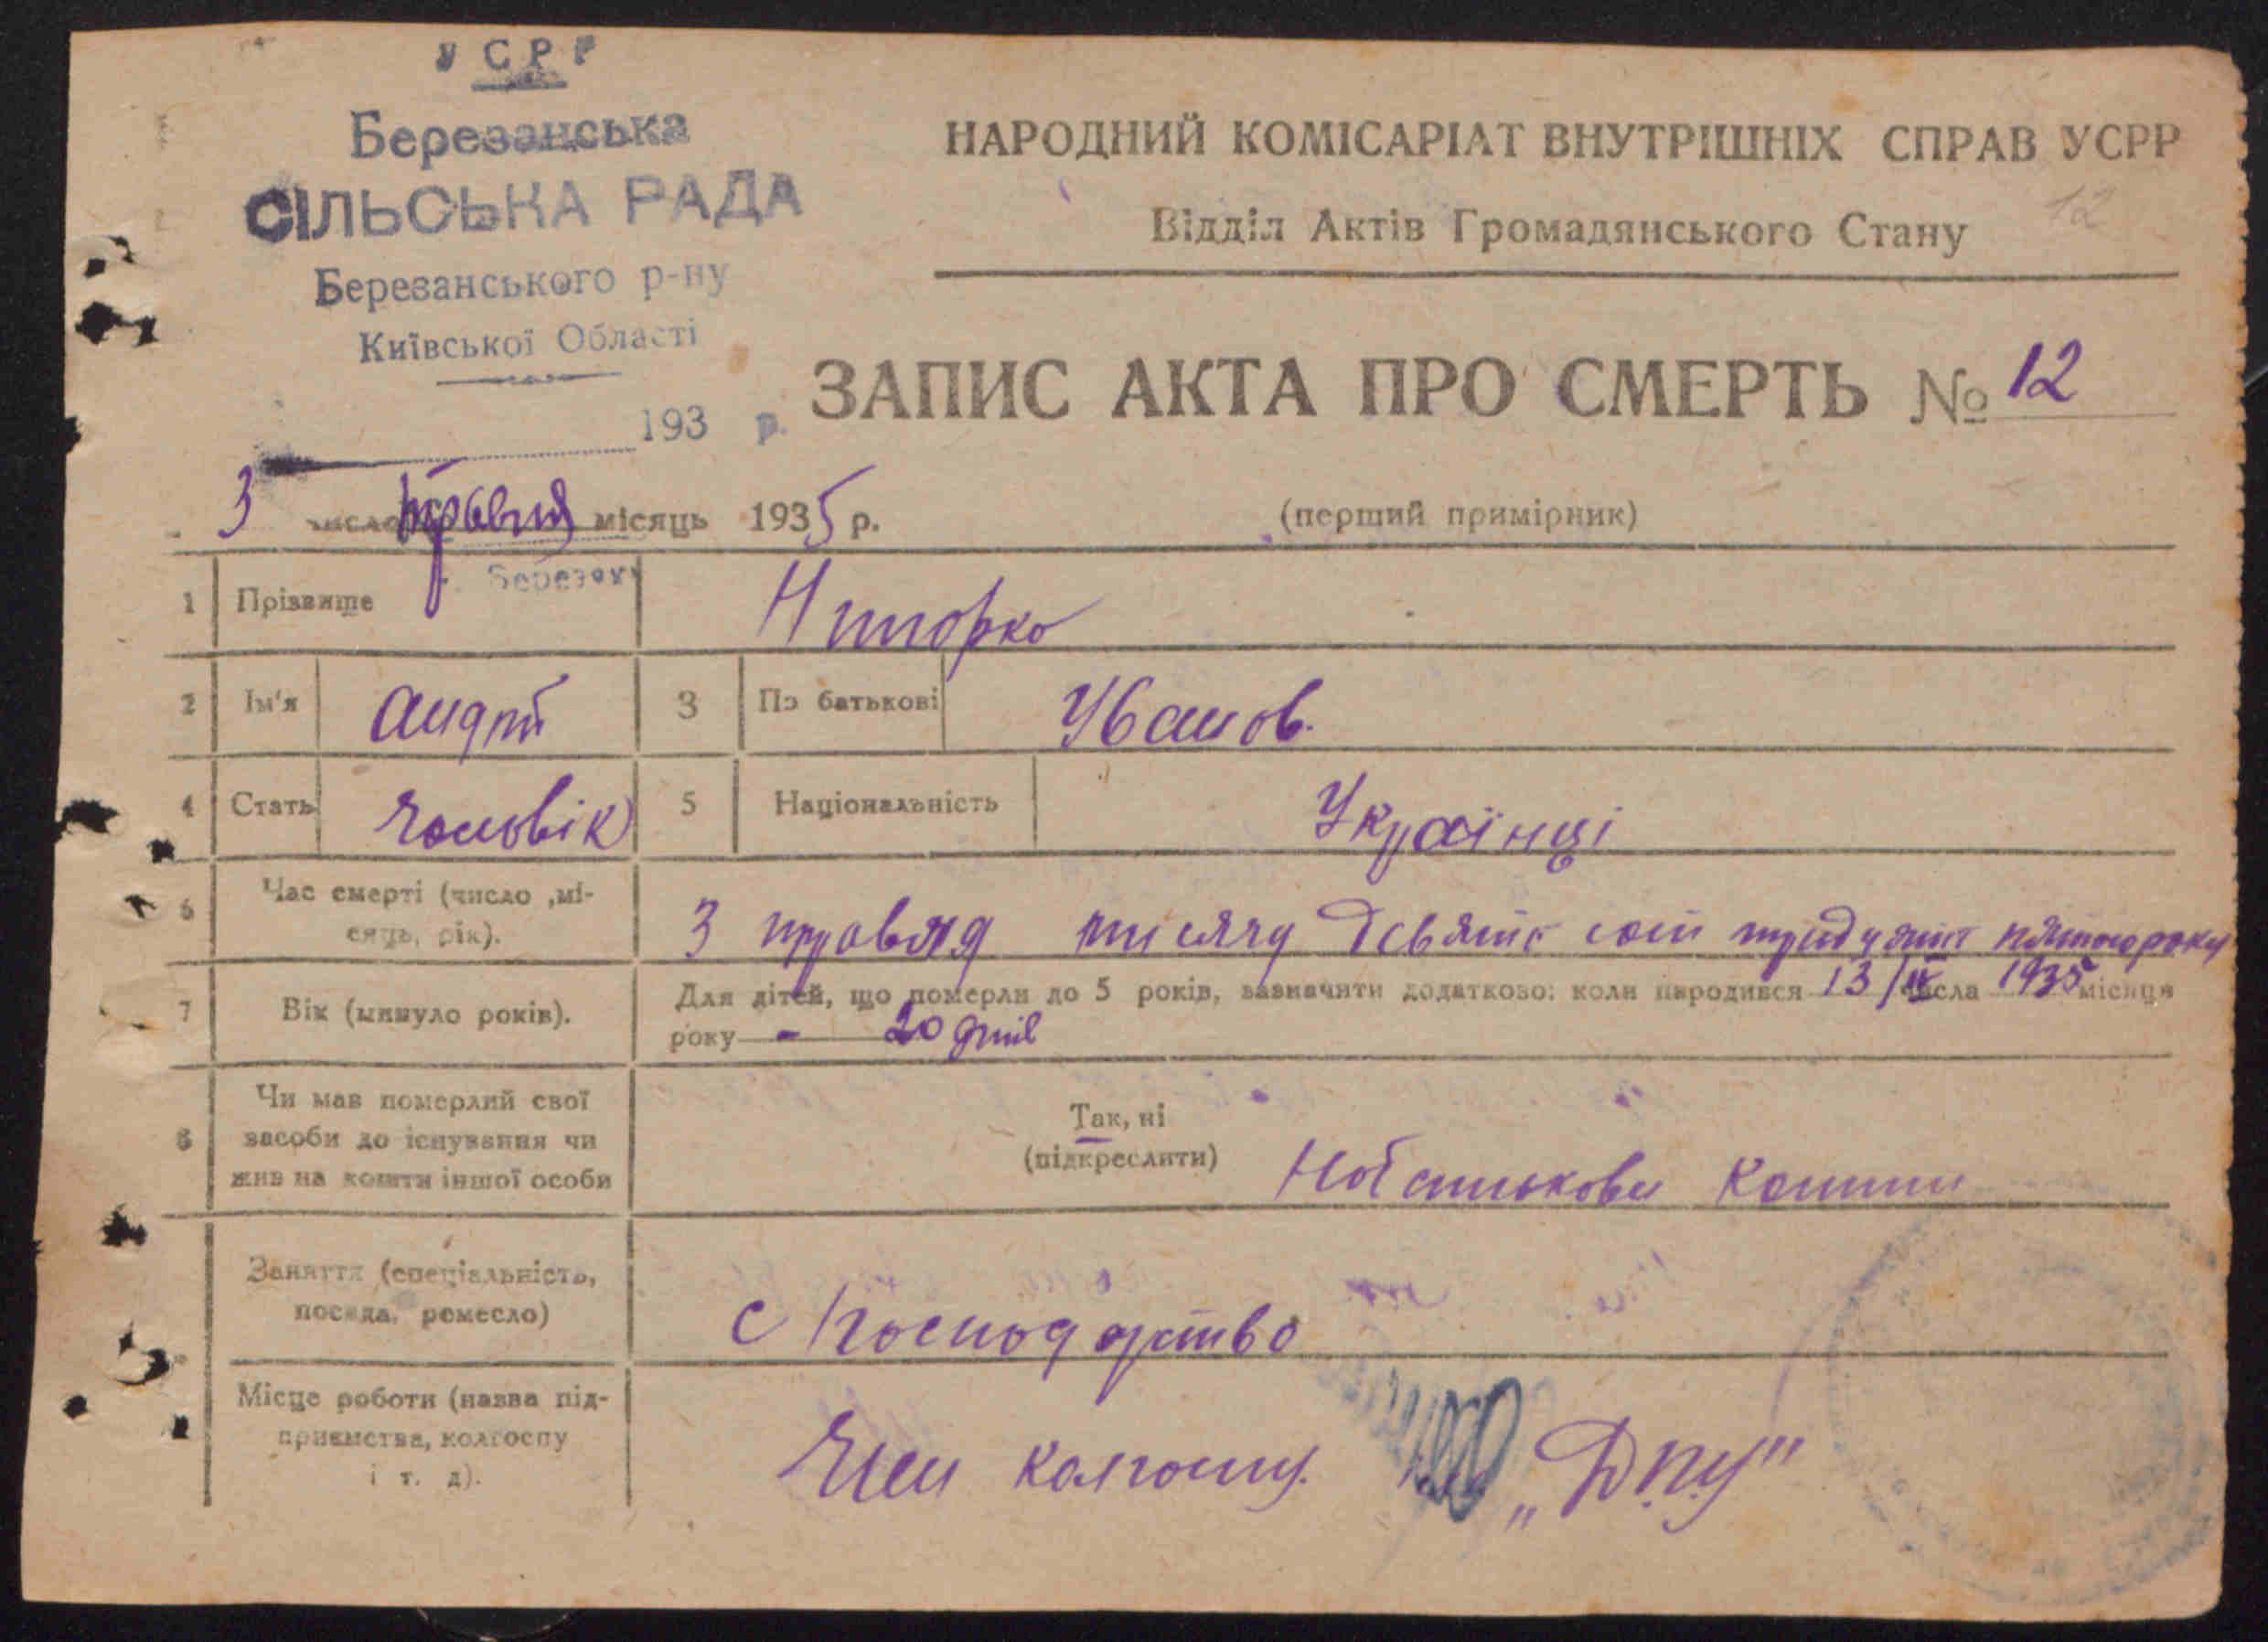 УСРР
Березанська
СІЛЬСЬКА РАДА
Березанського р-ну
Київської Області
193 р.
НАРОДНИЙ КОМІСАРІАТ ВНУТРІШНІХ СПРАВ УСРР
Відділ Актів Громадянського Стану
12
ЗАПИС АКТА ПРО СМЕРТЬ № 12
3 число травня місяць 1935 р.
(перший примірник)
березня
1 Прізвище Нипорко
2 Ім'я Андрій 3 По батькові Иванов.
4 Стать Чоловік 5 Національність Українці
6 Час смерті (число, мі-
сяць, рік).
3 травня тисячу девятьсот тридцять пятого року
7 Вік (минуло років).
Для дітей, що померли до 5 років, зазначити додатково: коли народився 13/IV числа 1935 місяця
року - 20 днів
8 Чи мав померлий свої
засоби до існування чи
жив на кошти іншої особи
Так, ні
(підкреслити)
На батькови кошти
Заняття (спеціальність,
посада, ремесло)
с/господарство
Місце роботи (назва під-
приємства, колгоспу
і т. д).
Член колгоспу „Д.П.У"